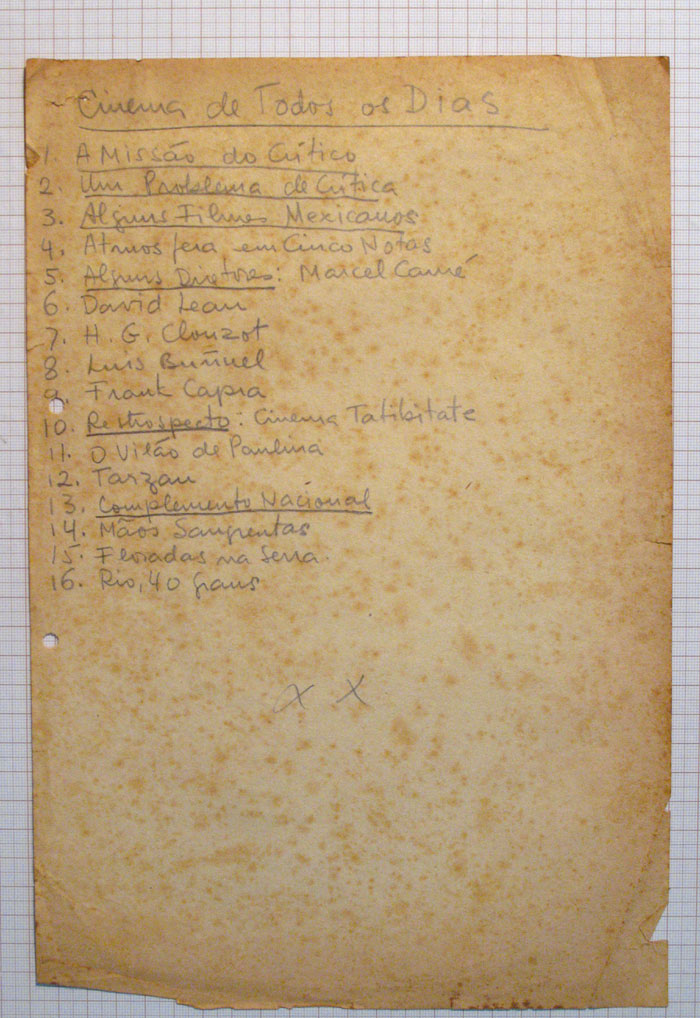 Cinema de Todos os Dias
1. A Missão do Crítico
2. Um Problema de Crítica
3. Alguns Filmes Mexicanos
4. Atmosfera em Cinco Notas
5. Alguns Diretores: Marcel Carné
6. David Lean
7. H. G. Clouzot
8. Luis Buñuel
9. Frank Capra
10. Restrospecto: Cinema Tatibitate
11. O Vilão de Paulina
12. Tarzan
13. Complemento Nacional
14. Mãos Sangrentas
15. Floradas na Serra.
16. Rio, 40 graus
x x